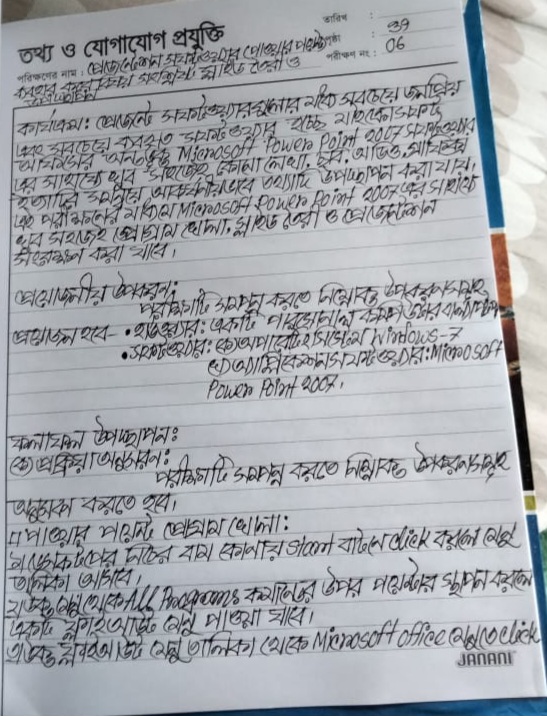 তারিখ :
তথ্য ও যোগাযোগ প্রযুক্তি
পৃষ্ঠা : 39
পরীক্ষণের নাম : প্রেজেন্টেশন সফটওয়্যার পাওয়ার পয়েন্ট
পরীক্ষণ নং : 06
ব্যবহার করে স্লাইড তৈরী ও
উপস্থাপন
কার্যক্রম: প্রেজেন্টেশন সফটওয়্যারগুলোর মধ্যে সবচেয়ে জনপ্রিয়
এবং সবচেয়ে ব্যবহৃত সফটওয়্যার হচ্ছে মাইক্রোসফট
অফিসের অন্তর্ভুক্ত Microsoft Power Point 2007 সফটওয়্যার
এর সাহায্যে খুব সহজেই কোনো লেখা, ছবি, অডিও,
ইত্যাদির সমন্বয়ে আকর্ষণীয়ভাবে তথ্যাদি উপস্থাপন করা যায়।
এই পরীক্ষণের মাধ্যমে Microsoft Power Point 2007 এর সাহায্যে
খুব সহজেই প্রোগ্রাম খোলা, স্লাইড তৈরী ও প্রেজেন্টেশন
সংরক্ষণ করা যাবে।
প্রয়োজনীয় উপকরণ:
পরীক্ষাটি সম্পন্ন করতে নিম্নোক্ত উপকরণসমূহ
প্রয়োজন হবে- • হার্ডওয়্যার: একটি পার্সোনাল কম্পিউটার বা ল্যাপটপ
• সফটওয়্যার: (ক) অপারেটিং সিস্টেম Windows-7
(খ) অ্যাপ্লিকেশন সফটওয়্যার: Microsoft
Power Point 2007,
ফলাফল উপস্থাপন:
(ক) প্রক্রিয়া অনুসরণ:
পরীক্ষাটি সম্পন্ন করতে নিম্নোক্ত উপকরণসমূহ
করতে হবে।
পাওয়ার পয়েন্ট প্রোগ্রাম খোলা:
১) ডেস্কটপের নিচের বাম কোনায় start বাটনে click করলে মেনু
তালিকা আসবে।
২) উক্ত মেনু থেকে All Programs কমান্ডের উপর পয়েন্টার স্থাপন করলে
একটি ফ্লাইআউট মেনু পাওয়া যাবে।
৩) উক্ত ফ্লাইআউট মেনু তালিকা থেকে Microsoft office মেনুতে click
JANANI